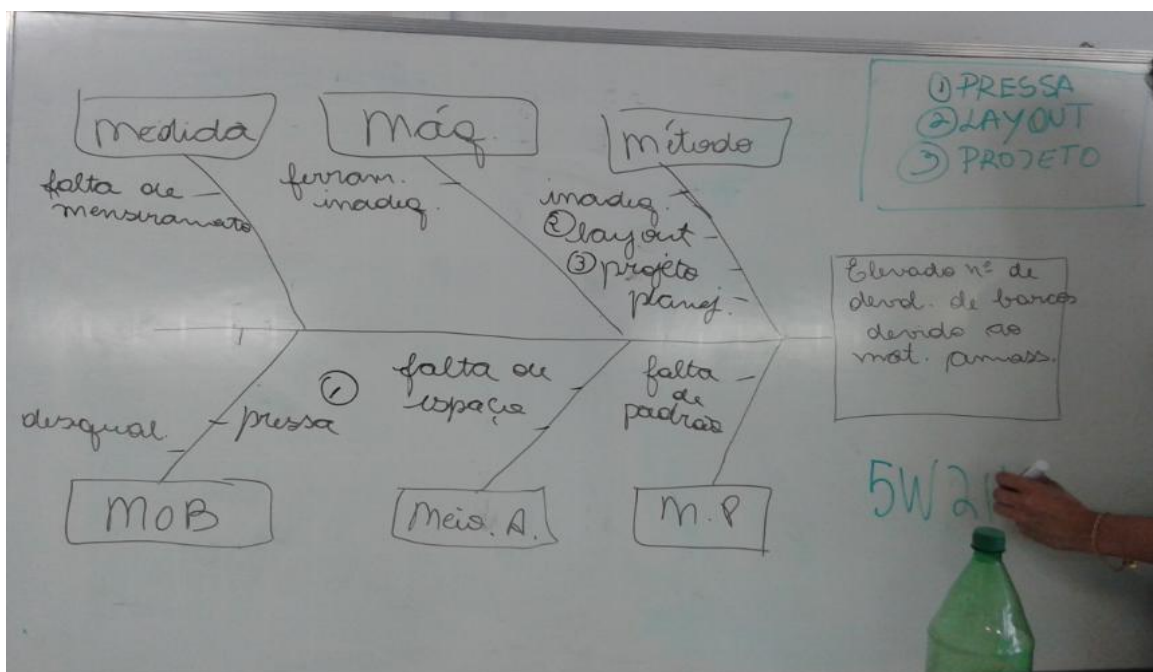 Medida
Máq.
Método
① PRESSA
② LAYOUT
③ PROJETO
falta de
mensuramento
ferram.
inadeq.
inadeq.
② layout
③ projeto
planej.
Elevado nº de
devol. de barcos
devido ao
mat. amass.
desqual.
① pressa
falta de
espaço
falta
de
padrão
MOB
Meio. A.
M.P
5W2